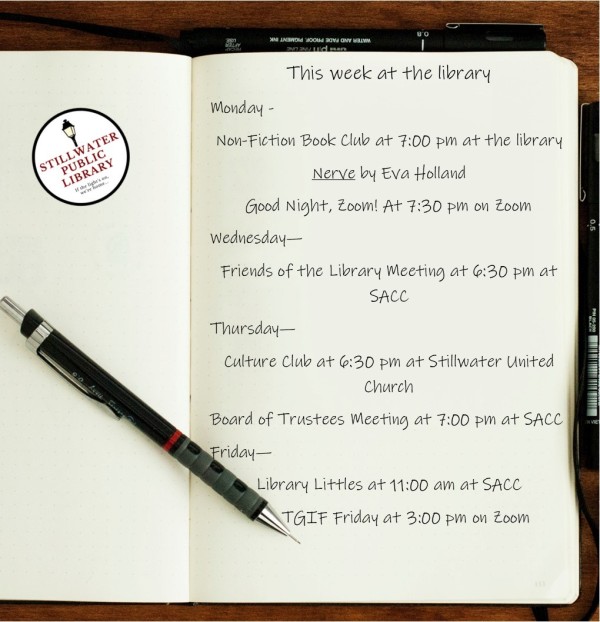 STILLWATER
PUBLIC
LIBRARY
If the light's on,
we're home...
WATER AND FADE PROOF, PIGMENT INK
0.8
This week at the library
Monday -
Non-Fiction Book Club at 7:00 pm at the library
Nerve by Eva Holland
Good Night, Zoom! At 7:30 pm on Zoom
Wednesday—
Friends of the Library Meeting at 6:30 pm at
SACC
Thursday—
Culture Club at 6:30 pm at Stillwater United
Church
Board of Trustees Meeting at 7:00 pm at SACC
Friday—
Library Littles at 11:00 am at SACC
TGIF Friday at 3:00 pm on Zoom
0.5